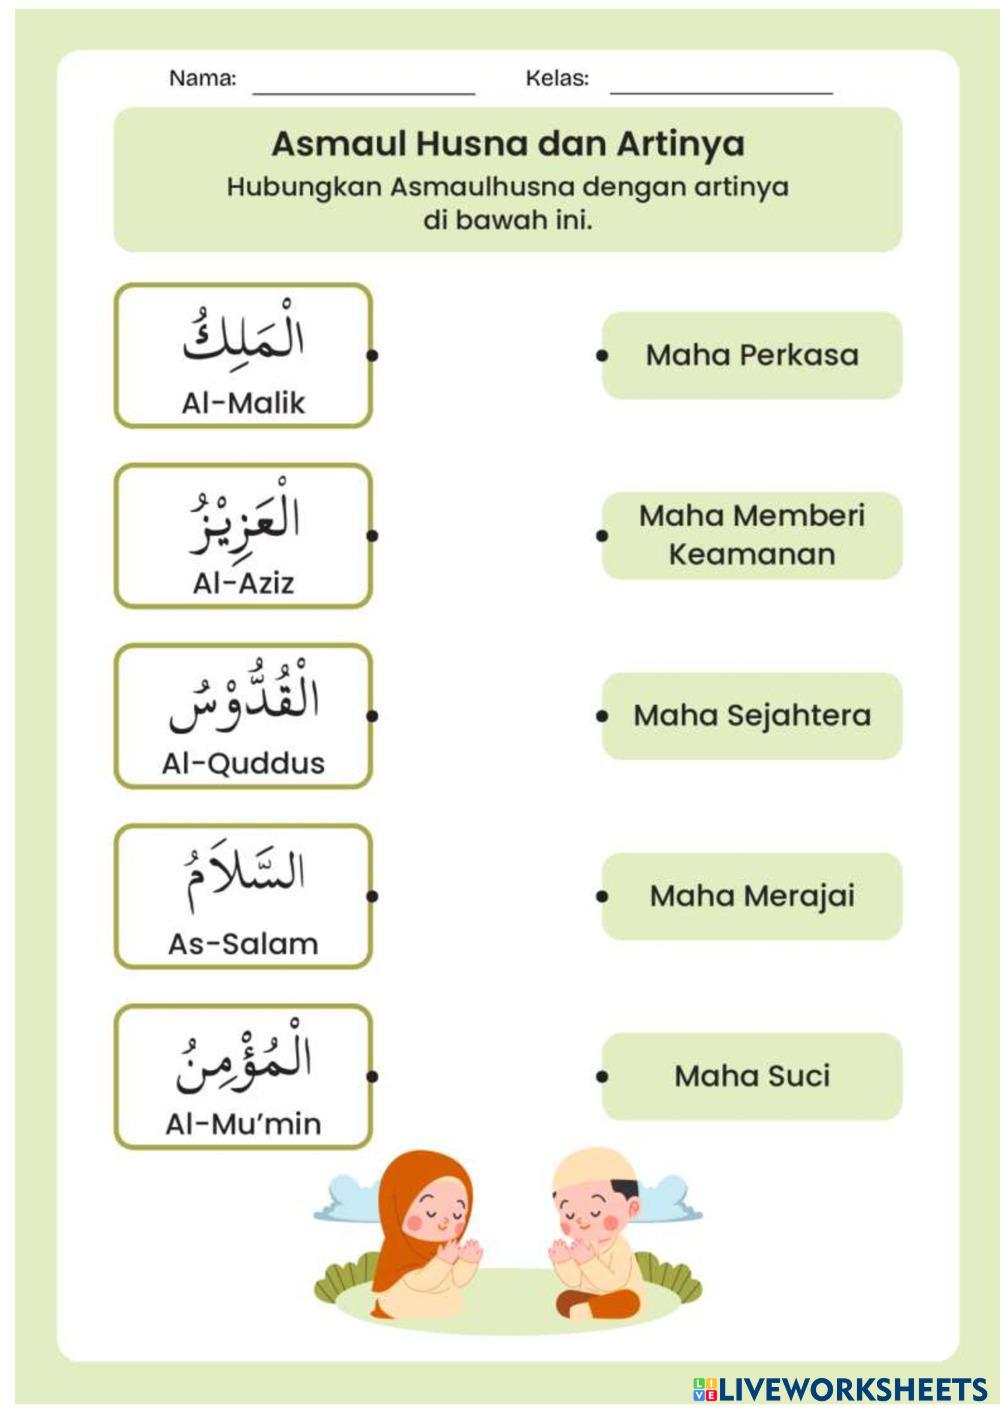 Nama: Kelas:
Asmaul Husna dan Artinya
Hubungkan Asmaulhusna dengan artinya
di bawah ini.
الْمَلِكُ
Al-Malik
Maha Perkasa
الْعَزِيْزُ
Al-Aziz
Maha Memberi
Keamanan
الْقُدُّوْسُ
Al-Quddus
Maha Sejahtera
السَّلاَمُ
As-Salam
Maha Merajai
الْمُؤْمِنُ
Al-Mu’min
Maha Suci
LIVE LIVEWORKSHEETS